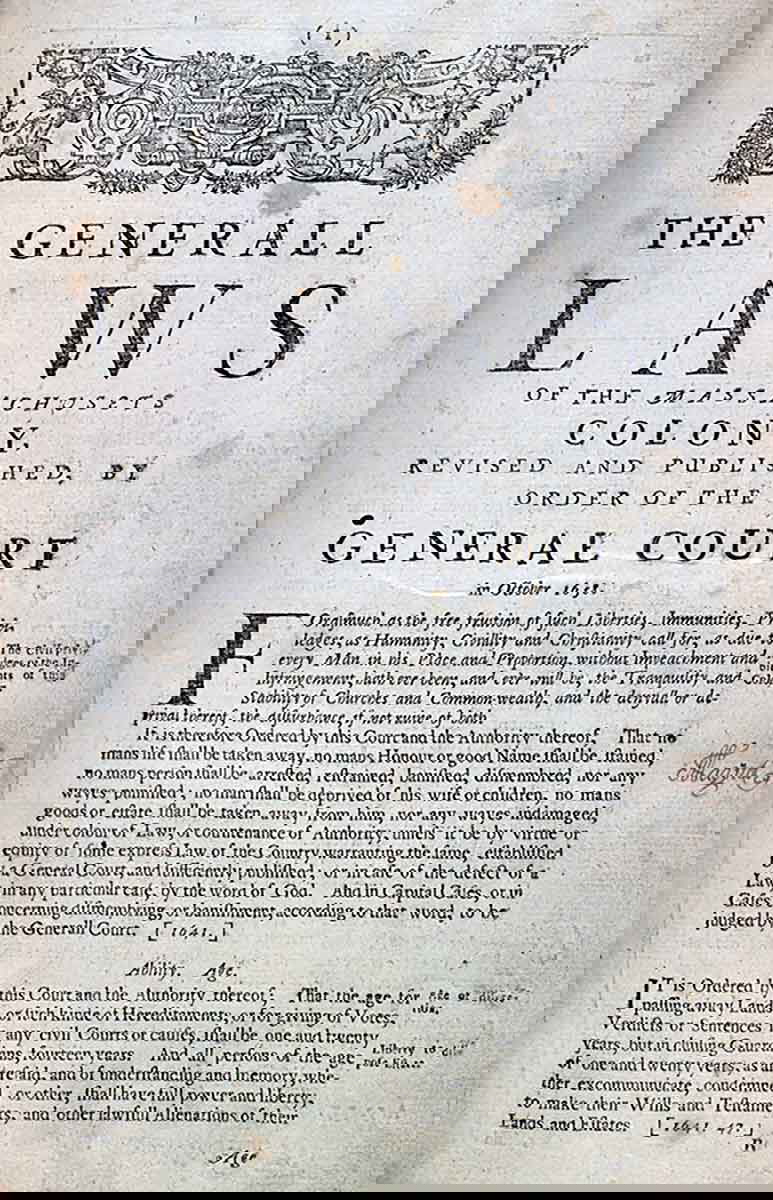 (1)
THE GENERALL
LAWS
OF THE MASSACHUSETS
COLONY,
REVISED AND PUBLISHED, BY
ORDER OF THE
GENERAL COURT
in October 1658.
FOrasmuch as the free fruition of such Liberties, Immunities, Priviledges, as Humanity, Civility and Christianity call for, as due to
every Man in his Place and Proportion, without Impeachment and
Infringement, hath ever been, and ever will be, the Tranquility and
Stability of Churches and Common-wealth; and the denyall or de-
prival thereof, the disturbance, if not ruine of both:
It is therefore Ordered by this Court and the Authority thereof, That no
mans life shall be taken away, no mans Honour or good Name shall be stained,
no mans person shall be arrested, restrained, banished, dismembred, nor any
wayes punished; no man shall be deprived of his wife or children, no mans
goods or estate shall be taken away from him, nor any wayes indamaged,
under colour of Law, or countenance of Authority, unless it be by virtue or
equity of some express Law of the Country warranting the same, established
by a General Court, and sufficiently published; or in case of the defect of a
Law in any particular case, by the word of God. And in Capital Cases, or in
Cases concerning dismembring or banishment, according to that word, to be
judged by the Generall Court. [1641.]
Ability. Age.
IT is Ordered by this Court and the Authority thereof, That the age for
passing away Lands, or such kinde of Hereditaments, or for giving of Votes,
Verdicts or Sentences in any civil Courts or causes, shall be one and twenty
years, but in chusing Guardians, fourteen years. And all persons of the age
of one and twenty years, as aforesaid, and of understanding and memory, whe-
ther excommunicate, condemned, or other, shall have full power and liberty,
to make their Wills and Testaments, and other lawfull Alienations of their
Lands and Estates. [1641. 47.]
Age